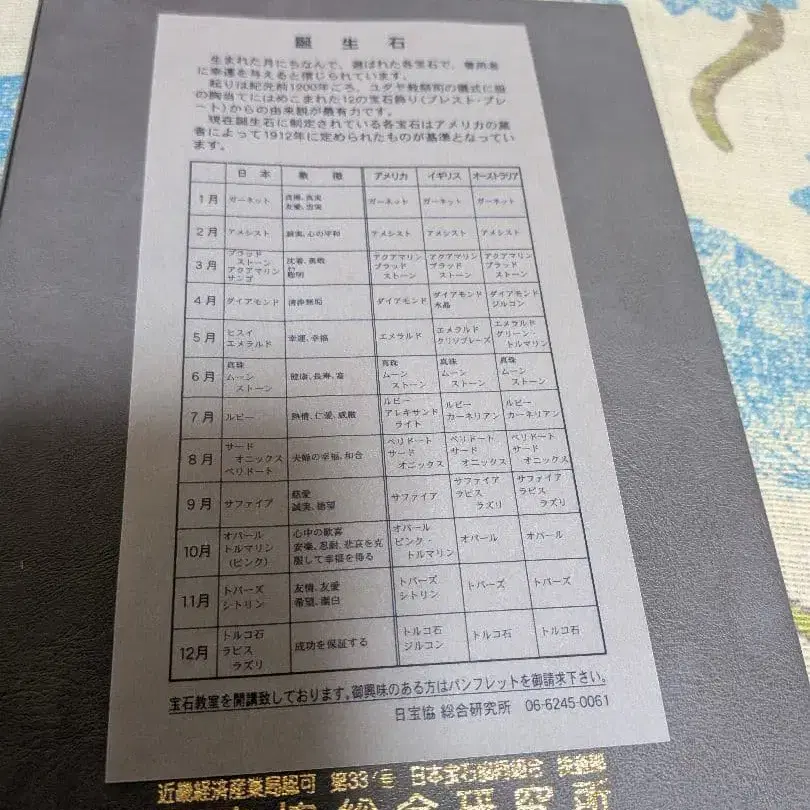 誕生石
生まれた月にちなんで、選ばれた各宝石で、着用者
に幸運を与えると信じられています。
起りは紀元前1200年ごろ、ユダヤ教祭司の儀式に服
の胸当てにはめこまれた12の宝石飾り(ブレスト・プレ
ート)からの由来説が最有力です。
現在誕生石に制定されている各宝石はアメリカの業
者によって1912年に定められたものが基準となってい
ます。
日本 象徴 アメリカ イギリス オーストラリア
1月 ガーネット 貞操、真実 友愛、忠実 ガーネット ガーネット ガーネット
2月 アメシスト 誠実、心の平和 アメシスト アメシスト アメシスト
3月 ブラッドストーン アクアマリン サンゴ 沈着、勇敢 聡明 アクアマリン ブラッドストーン アクアマリン ブラッドストーン アクアマリン ブラッドストーン
4月 ダイアモンド 清浄無垢 ダイアモンド ダイアモンド 水晶 ダイアモンド ジルコン
5月 ヒスイ エメラルド 幸運、幸福 エメラルド エメラルド クリソプレーズ エメラルド グリーン・トルマリン
6月 真珠 ムーンストーン 健康、長寿、富 真珠 ムーンストーン 真珠 ムーンストーン 真珠 ムーンストーン
7月 ルビー 熱情、仁愛、威厳 ルビー アレキサンドライト ルビー カーネリアン ルビー カーネリアン
8月 サードオニックス ペリドート 夫婦の幸福、和合 ペリドート サードオニックス ペリドート サードオニックス ペリドート サードオニックス
9月 サファイア 慈愛 誠実、徳望 サファイア サファイア ラピスラズリ サファイア ラピスラズリ
10月 オパール トルマリン (ピンク) 心中の歓喜 安楽、忍耐、悲哀を克服して幸福を得る オパール ピンク・トルマリン オパール オパール
11月 トパーズ シトリン 友情、友愛 希望、潔白 トパーズ シトリン トパーズ トパーズ
12月 トルコ石 ラピスラズリ 成功を保証する トルコ石 ジルコン トルコ石 トルコ石
宝石教室を開講致しております。御興味のある方はパンフレットを御請求下さい。
日宝協 総合研究所 06-6245-0061
近畿経済産業局認可 第33号 日本宝石協同組合
総合研究所